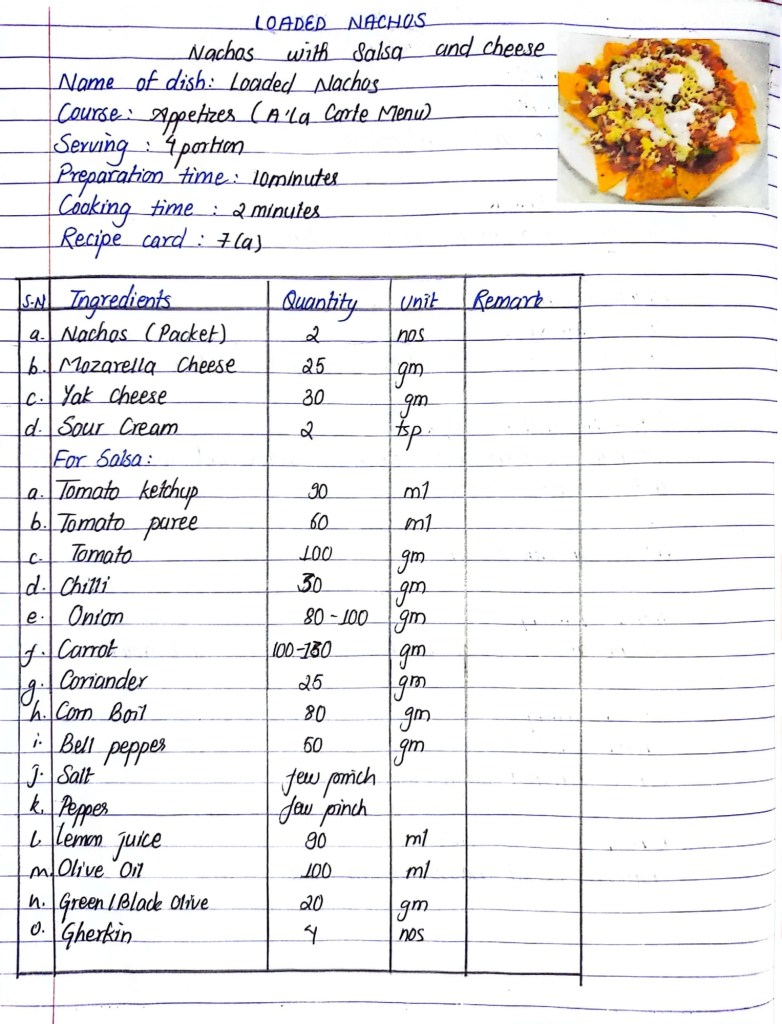 LOADED NACHOS
Nachos with Salsa and cheese
Name of dish: Loaded Nachos
Course: Appetizes (A'la Carte Menu)
Serving : 4 portion
Preparation time: 10minutes
Cooking time : 2 minutes
Recipe card : 7(a)
S.N Ingredients Quantity Unit Remark
a. Nachos (Packet) 2 nos
b. Mozarella Cheese 25 gm
c. Yak Cheese 30 gm
d. Sour Cream 2 tsp.
For Salsa:
a. Tomato ketchup 90 ml
b. Tomato puree 60 ml
c. Tomato 100 gm
d. Chilli 30 gm
e. Onion 80-100 gm
f. Carrot 100-130 gm
g. Coriander 25 gm
h. Corn Boil 80 gm
i. Bell pepper 60 gm
j. Salt few pinch
k. Pepper few pinch
l. Lemon juice 90 ml
m. Olive Oil 100 ml
n. Green/Black Olive 20 gm
o. Gherkin 4 nos